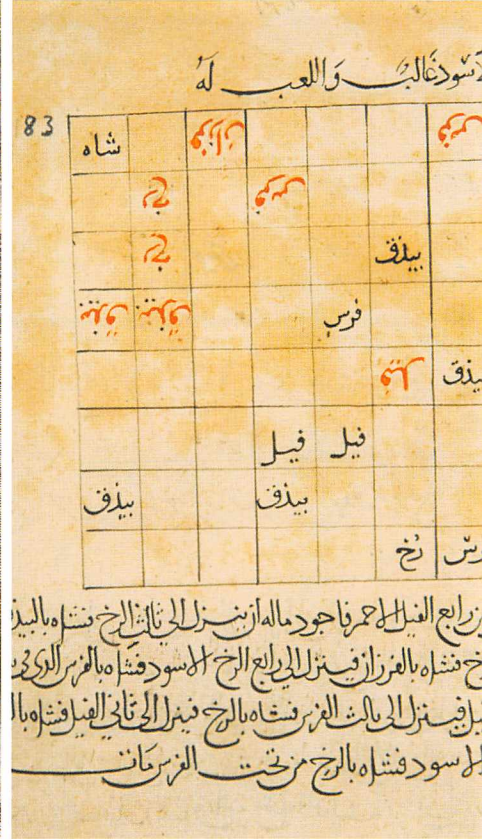 الاسود غالب واللعب له
83
شاه فرزان فرس
رخ فرس
رخ بيذق
بيذق بيذق فرس
فيل بيذق
فيل فيل
بيذق بيذق
رخ فرس
رابع الفيل الاحمر فاجود ماله ان ينزل الى ثالث الرخ فشاه بالبيذق
فشاه بالفرزان فينزل الى رابع الرخ الاسود فشاه بالفرس الذى
فينزل الى ثالث الفرس فشاه بالرخ فينزل الى ثانى الفيل فشاه
الاسود فشاه بالرخ من تحت الفرس مات